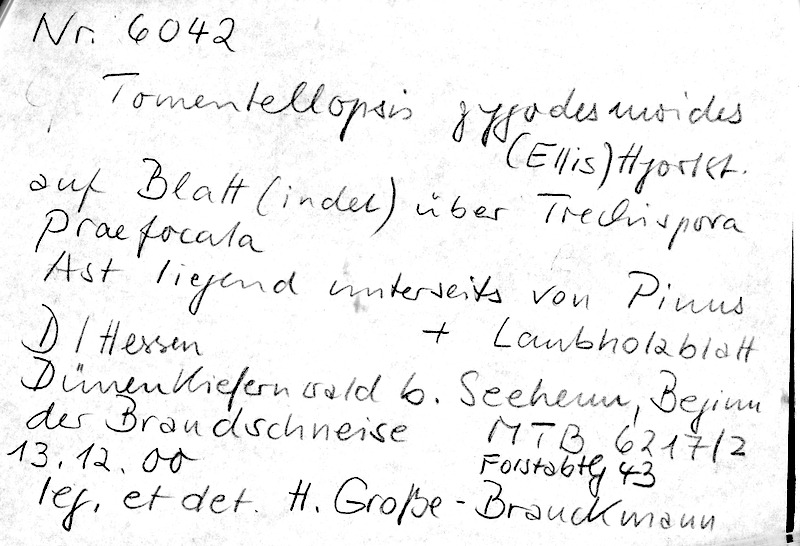 Nr. 6042
Tomentellopsis zygodesmoides
(Ellis) Hjortst.
auf Blatt (indet) über Trechispora
praefocata
Ast liegend unterseits von Pinus
D / Hessen + Laubholzblatt
Dünenkiefernwald b. Seeheim, Beginn
der Brandschneise MTB 6217/2
13.12.00 Forstabtlg 43
leg. et det. H. Große-Brauckmann